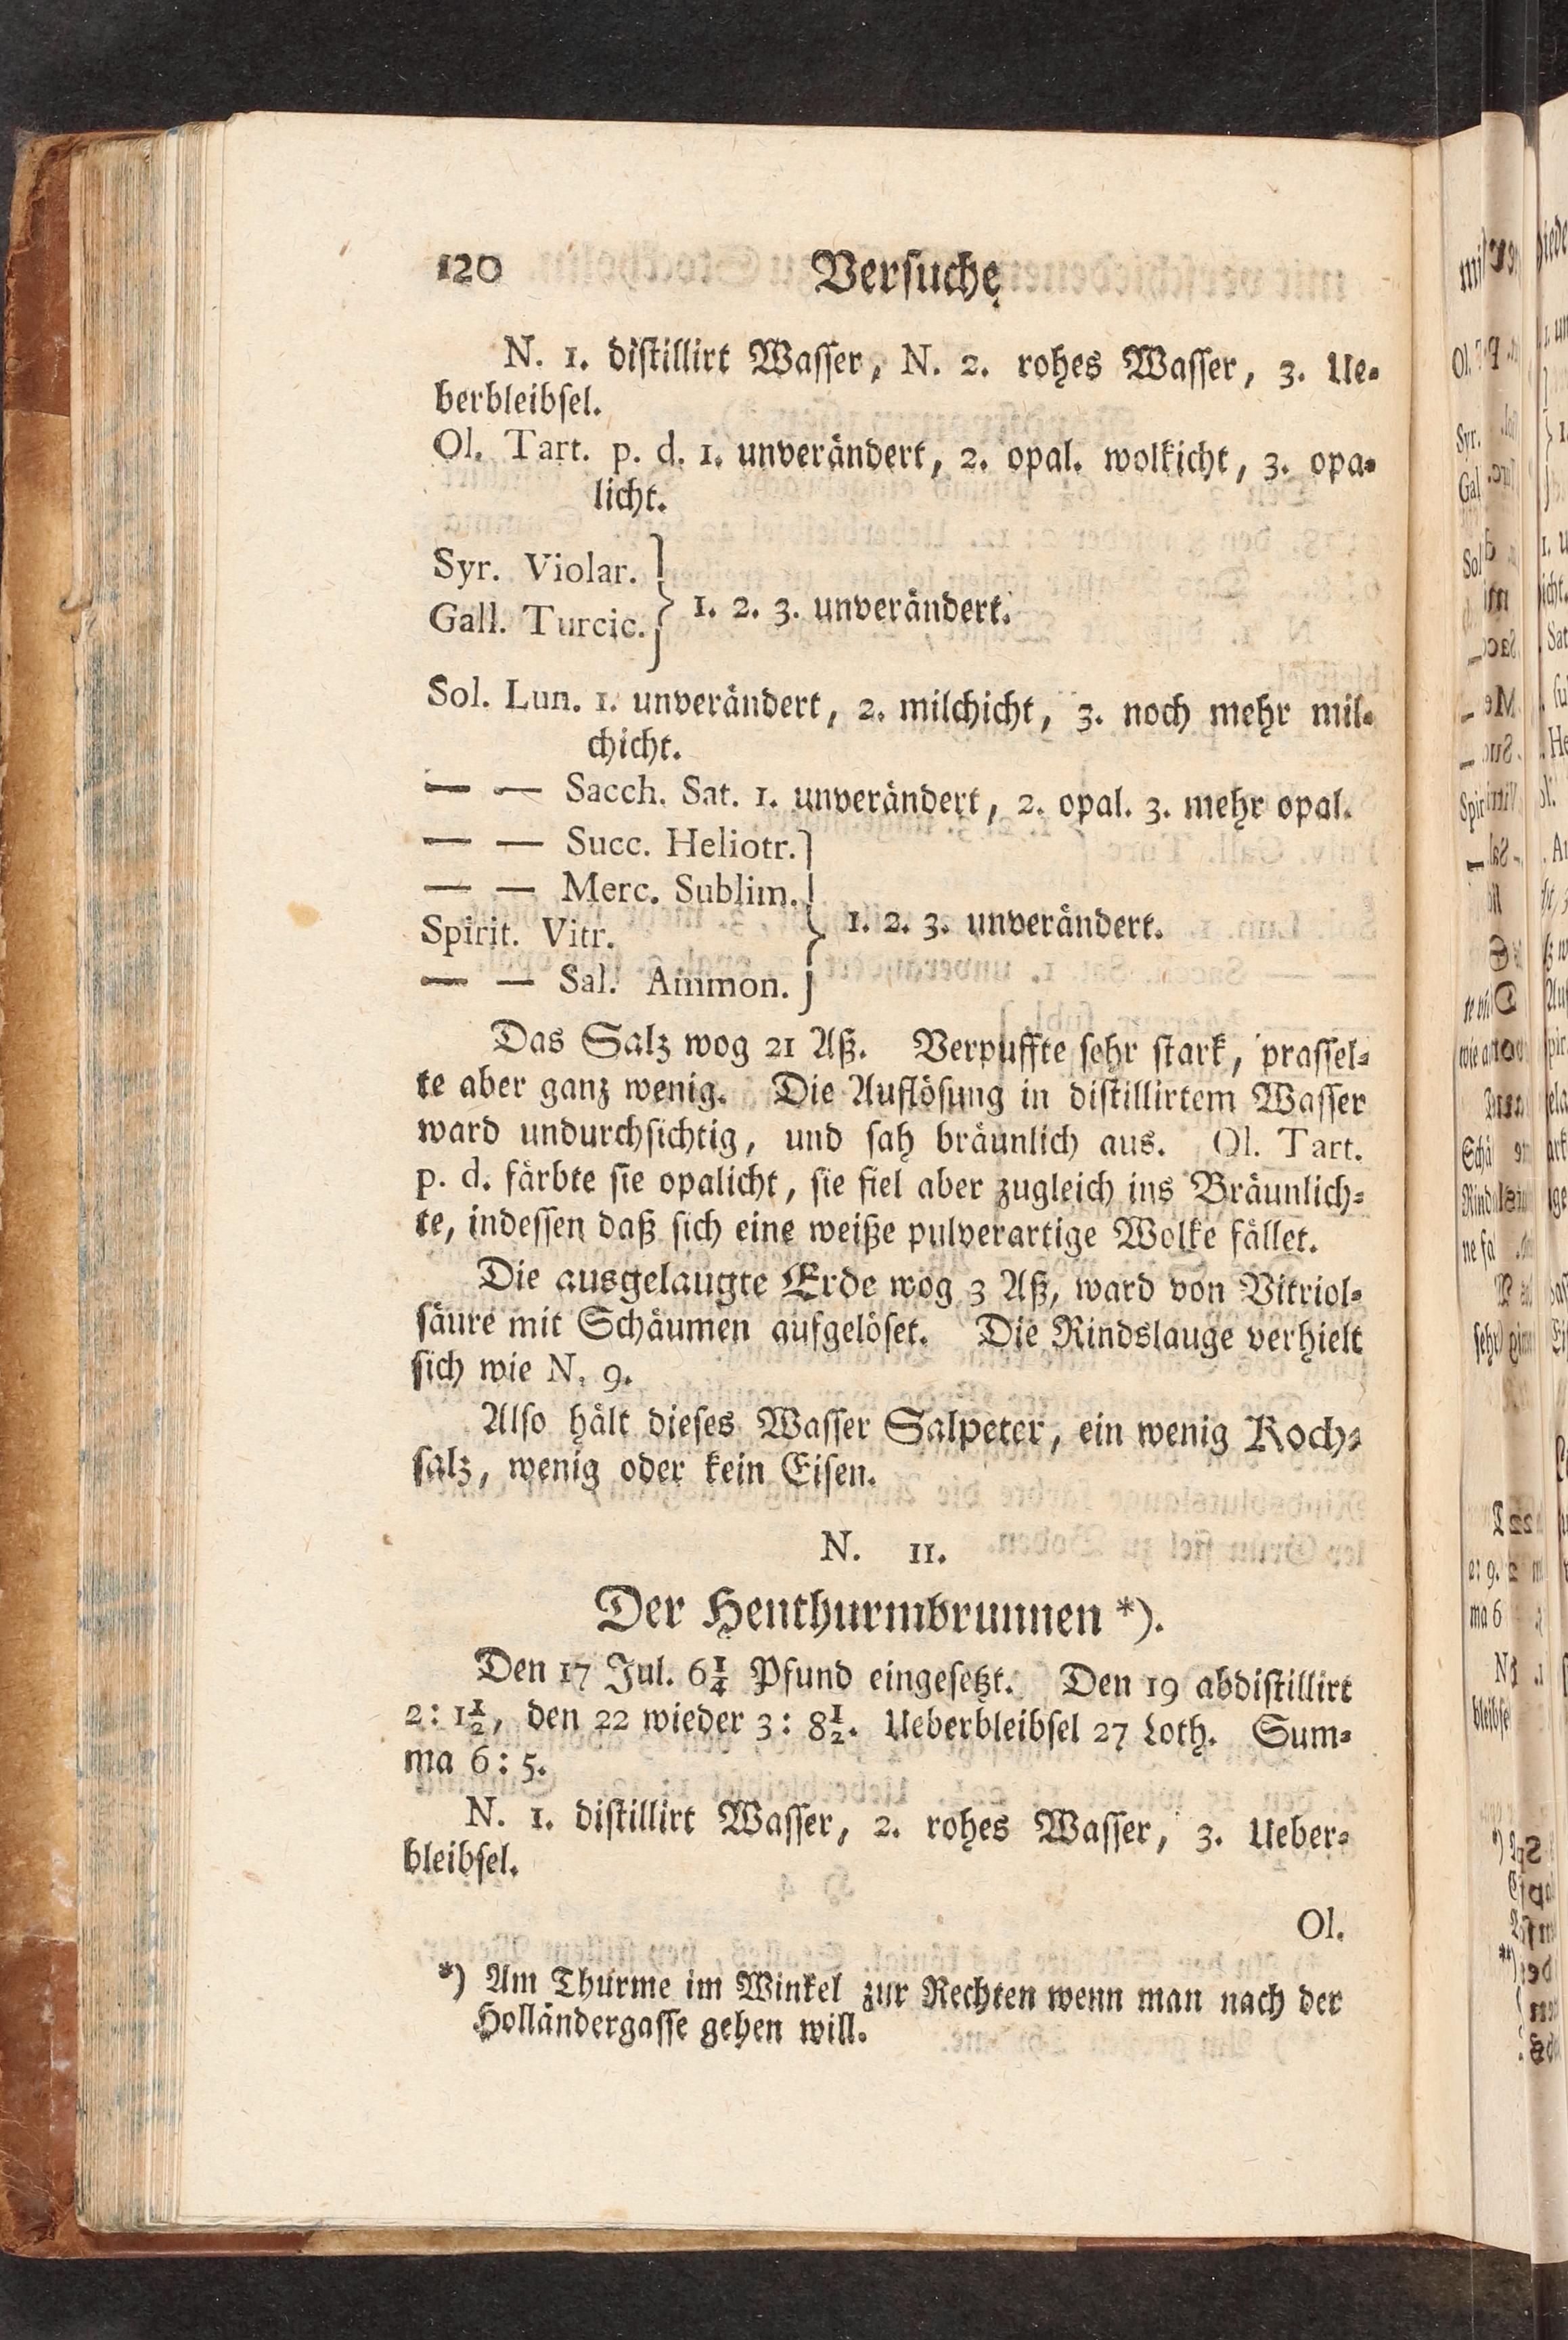 120 Versuche
N. 1. distillirt Wasser, N. 2. rohes Wasser, 3. Ue-
berbleibsel.
Ol. Tart. p. d. 1. unverändert, 2. opal. wolkicht, 3. opa-
licht.
Syr. Violar.
Gall. Turcic. } 1. 2. 3. unverändert.
Sol. Lun. 1. unverändert, 2. milchicht, 3. noch mehr mil-
chicht.
— — Sacch. Sat. 1. unverändert, 2. opal. 3. mehr opal.
— — Succ. Heliotr.
— — Merc. Sublim.
Spirit. Vitr. } 1. 2. 3. unverändert.
— — Sal. Ammon.
Das Salz wog 21 Aß. Verpuffte sehr stark, prassel-
te aber ganz wenig. Die Auflösung in distillirtem Wasser
ward undurchsichtig, und sah bräunlich aus. Ol. Tart.
p. d. färbte sie opalicht, sie fiel aber zugleich ins Bräunlich-
te, indessen daß sich eine weiße pulverartige Wolke fället.
Die ausgelaugte Erde wog 3 Aß, ward von Vitriol-
säure mit Schäumen aufgelöset. Die Rindslauge verhielt
sich wie N. 9.
Also hält dieses Wasser Salpeter, ein wenig Koch-
salz, wenig oder kein Eisen.
N. 11.
Der Henthurmbrunnen *).
Den 17 Jul. 6¼ Pfund eingesetzt. Den 19 abdistillirt
2: 1½, den 22 wieder 3: 8½. Ueberbleibsel 27 Loth. Sum-
ma 6: 5.
N. 1. distillirt Wasser, 2. rohes Wasser, 3. Ueber-
bleibsel.
Ol.
*) Am Thurme im Winkel zur Rechten wenn man nach der
Holländergasse gehen will.